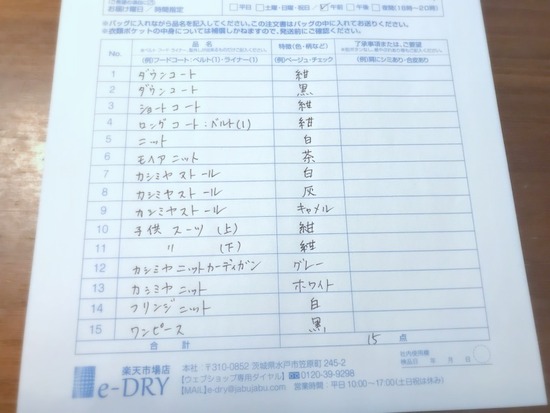 お届け曜日・時間指定 平日 土曜・日曜・祝日 午前 午後 夜間(18時〜20時)
※バッグに入れながら品名を記入してください。この注文書はバッグの中に入れてお送りください。
※衣類ポケットの中身については補償しかねますので、発送前にご確認ください。
No. 品名 特徴(色・柄など) 了承事項または、ご要望
(例)フードコート:ベルト(1)・ライナー(1) (例)ベージュ・チェック (例)肩にシミあり・虫食あり
1 ダウンコート 紺
2 ダウンコート 黒
3 ショートコート 紺
4 ロングコート:ベルト(1) 紺
5 ニット 白
6 モヘアニット 茶
7 カシミヤストール 白
8 カシミヤストール 灰
9 カシミヤストール キャメル
10 子供スーツ(上) 紺
11 〃 (下) 紺
12 カシミヤニットカーディガン グレー
13 カシミヤニット ホワイト
14 フリンジニット 白
15 ワンピース 黒
合計 15点
楽天市場店
e-DRY
本社 〒310-0852 茨城県水戸市笠原町245-2
【ウェブショップ専用ダイヤル】0120-39-9298
【MAIL】e-dry@jabujabu.com 営業時間:平日10:00〜17:00(土日祝は休み)
社内使用欄
検品日 年 月 日